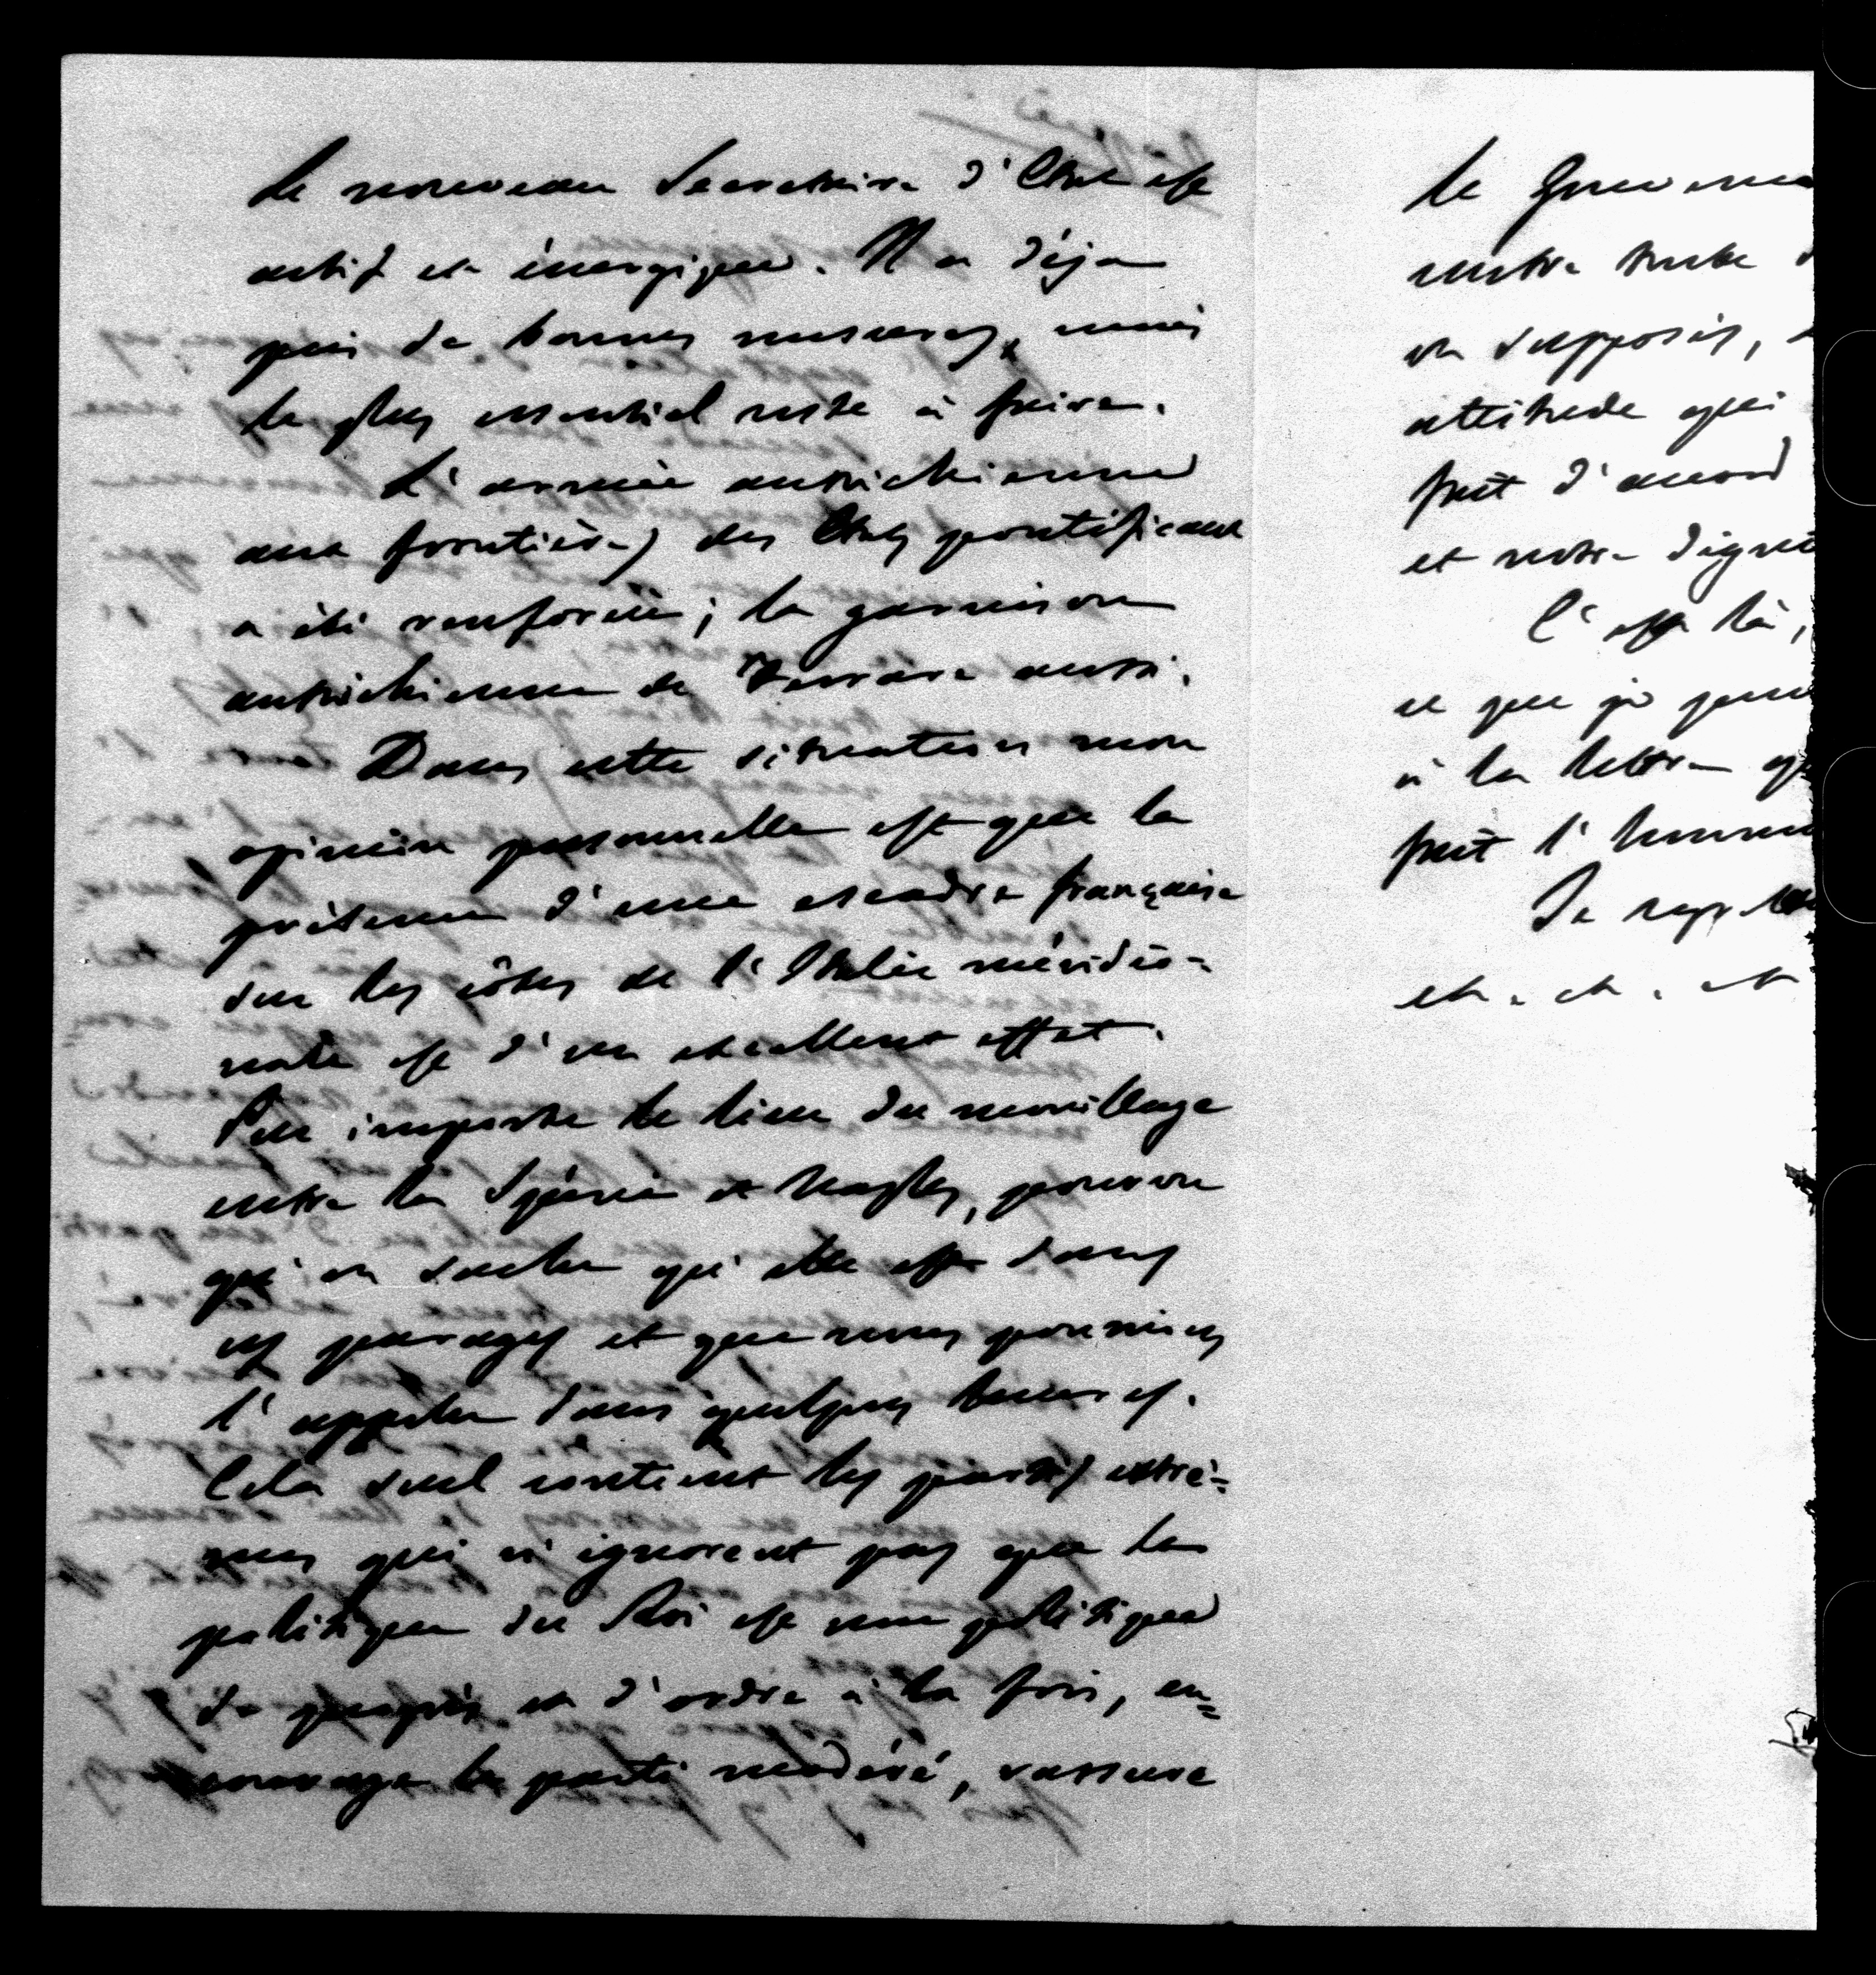 Le nouveau Secrétaire d'Etat est
actif et énergique. Il a déja
pris de bonnes mesures, mais
le plus essentiel reste à faire.
L'armée autrichienne
aux frontières des Etats pontificaux
a été renforcée; la garnison
autrichienne de Ferrare aussi.
Dans cette situation mon
opinion personnelle est que la
présence d'une escadre française
sur les côtes de l'Italie méridio-
nale est d'un excellent effet.
Peu importe le lieu du mouillage
entre la Spézia et Naples, pourvu
qu'on sache qu'elle est dans
ces parages et que nous pourrions
l'appeler dans quelques heures.
Cela seul contient les partis extrê-
mes qui n'ignorent pas que la
politique du Roi est une politique
de progrès et d'ordre à la fois, en-
courage le parti modéré, rassure
le Gouverne
notre
on suppose,
attitude qui
fait d'accord
et notre dignité
C'est là,
ce que je pense
à la lettre
fait l'honneur
Je
etc. etc. etc